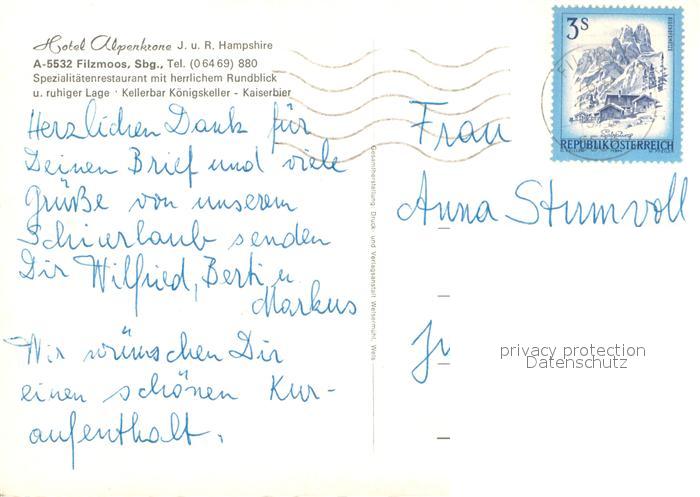 Hotel Alpenkrone J. u. R. Hampshire
A-5532 Filzmoos, Sbg., Tel. (0 64 69) 880
Spezialitätenrestaurant mit herrlichem Rundblick
u. ruhiger Lage · Kellerbar Königskeller - Kaiserbier
Herzlichen Dank für
Deinen Brief und viele
Grüße von unserem
Schiurlaub senden
Dir Wilfried, Berti u.
Markus
Wir wünschen Dir
einen schönen Kur-
aufenthalt.
Gesamtherstellung: Druck- und Verlagsanstalt Welsermühl, Wels
3S
REPUBLIK ÖSTERREICH
Frau
Anna Sturmvoll
privacy protection
Datenschutz